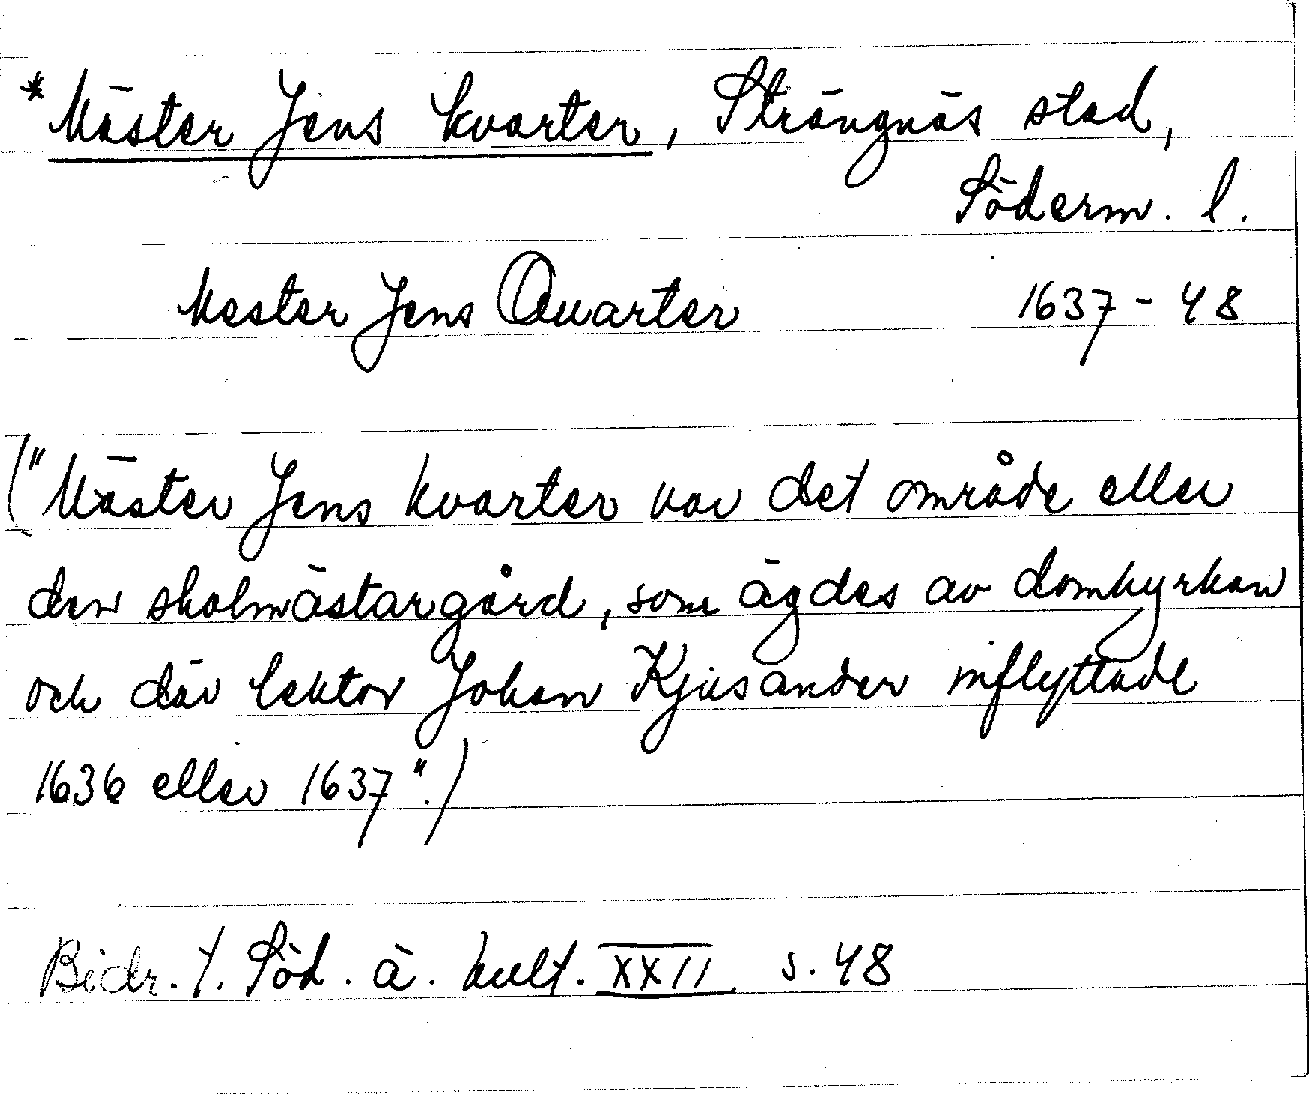 *Mäster Jens kvarter, Strängnäs stad,
Söderm. l.
Mester Jens Quarter 1637-48
("Mäster Jens kvarter var det område eller
den skolmästargård, som ägdes av domkyrkan
och där lektor Johan Kjusander inflyttade
1636 eller 1637".)
Bidr. t. Söd. ä. kult. XXII s. 48